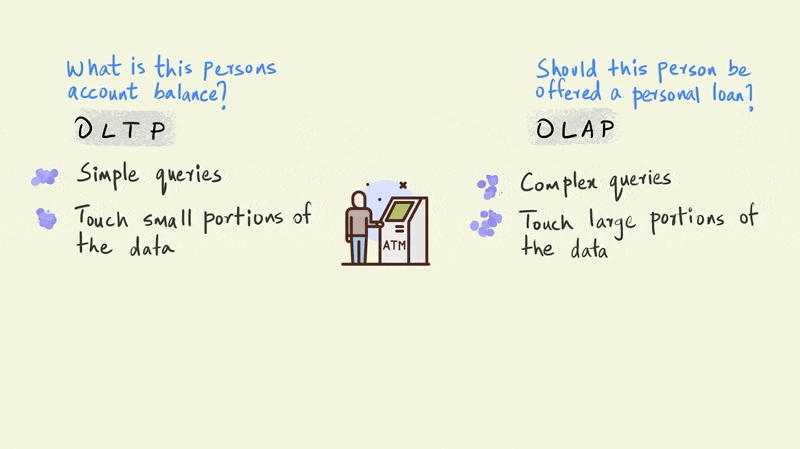 What is this persons
account balance?
OLTP
Simple queries
Touch small portions of
the data
ATM
Should this person be
offered a personal loan?
OLAP
Complex queries
Touch large portions of
the data